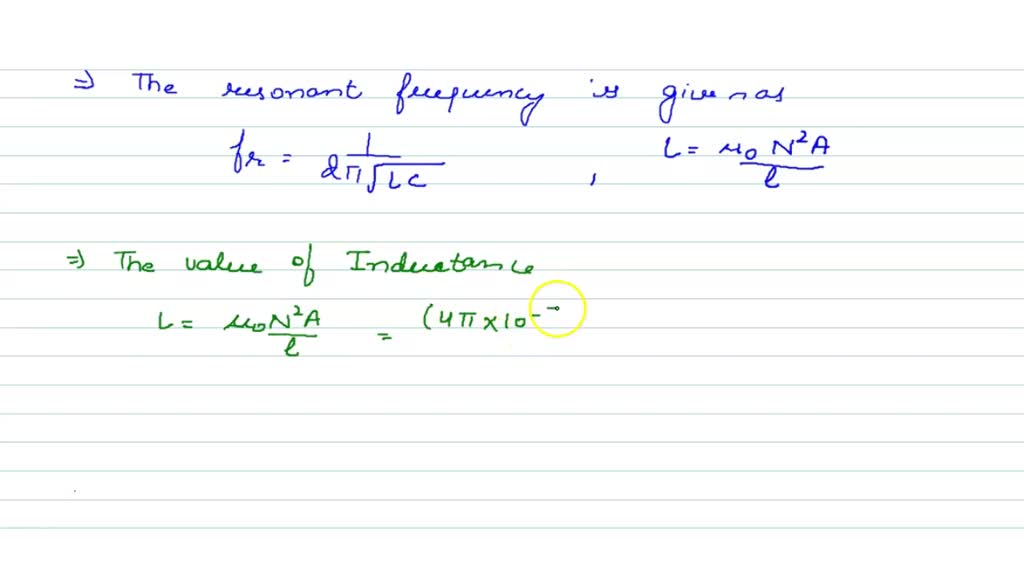 ⇒ The resonant frequency is given as
fr = 1 / 2π√LC , L = μ₀ N²A / l
⇒ The value of Inductance
L = μ₀N²A / l = (4π×10⁻⁷